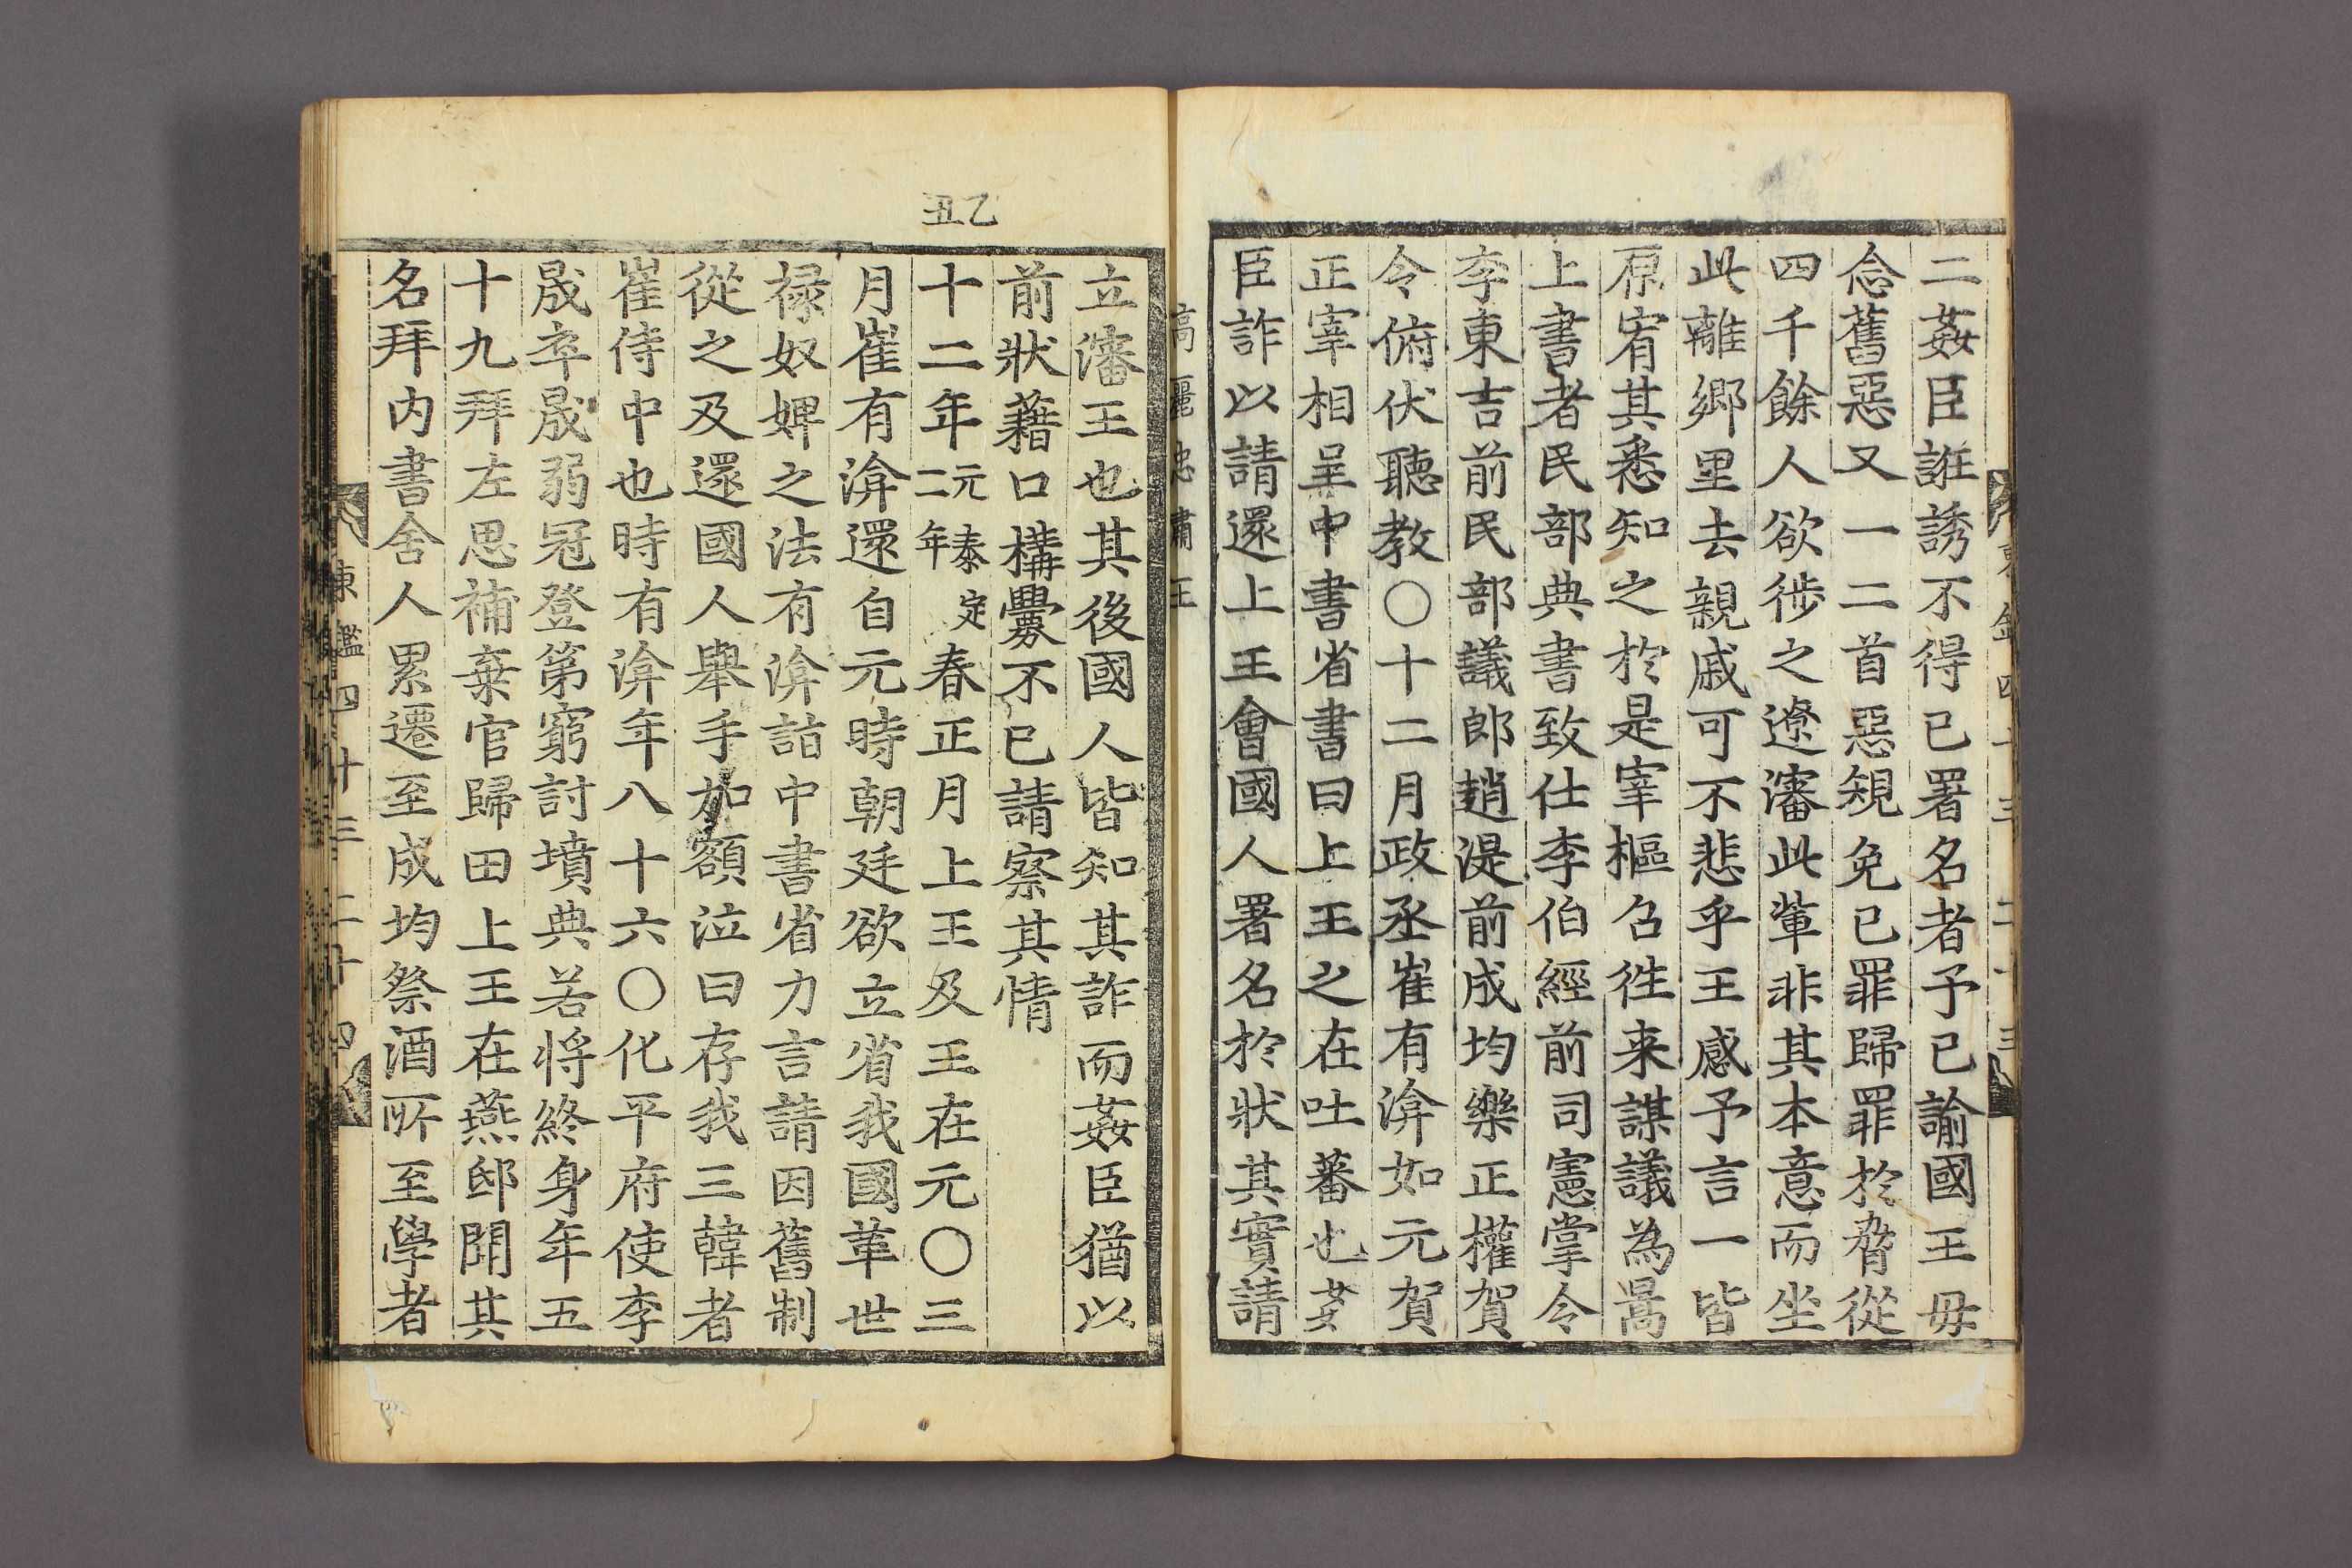 二姦臣誑誘不得已署名者予已諭國王毋
念舊惡又一二首惡規免已罪歸罪於脅從
四千餘人欲徙之遼瀋此輩非其本意而坐
此離鄉里去親戚可不悲乎王感予言一皆
原宥其悉知之於是宰樞召徃来謀議為暠
上書者民部典書致仕李伯經前司憲掌令
李東吉前民部議郎趙湜前成均樂正權賀
令俯伏聽教○十二月政丞崔有渰如元賀
正宰相呈中書省書曰上王之在吐蕃也姦
臣詐以請還上王會國人署名於狀其實請
高麗忠肅王
乙丑
立瀋王也其後國人皆知其詐而姦臣猶以
前狀藉口構釁不已請察其情
十二年元泰定二年春正月上王及王在元○三
月崔有渰還自元時朝廷欲立省我國革世
祿奴婢之法有渰詣中書省力言請因舊制
從之及還國人舉手加額泣曰存我三韓者
崔侍中也時有渰年八十六○化平府使李
晟卒晟弱冠登第窮討墳典若將終身年五
十九拜左思補棄官歸田上王在燕邸聞其
名拜内書舍人累遷至成均祭酒所至學者
東鑑四十三 二十四